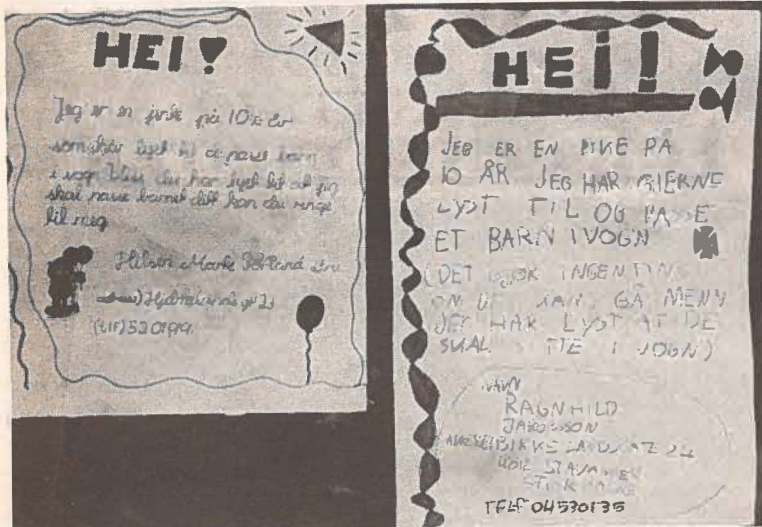 HEI!
Jeg er en jente på 10½ år
som har lyst til å passe barn
i vogn. Hvis du har lyst til at jeg
skal passe barnet ditt kan du ringe
til meg
Hilsen Marte
(tlf) 520199
HEI!
JEG ER EN PIKE PÅ
10 ÅR JEG HAR GJERNE
LYST TIL OG PASSE
ET BARN I VOGN
(DET GJØR INGENTING
OM DE KAN GÅ MEN
JEG HAR LYST AT DE
SKAL SITTE I VOGN)
NAVN
RAGNHILD
ADRESSE BIRKELANDSGATE 24
STAVANGER
TELF 04530135